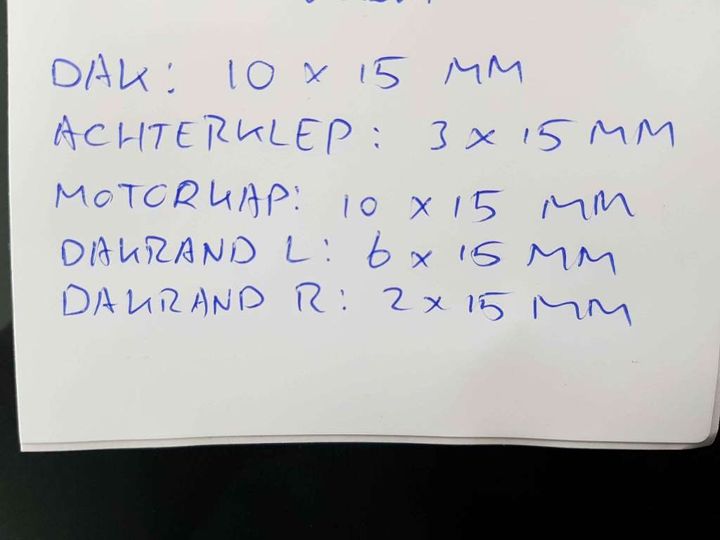 DAK: 10 x 15 MM
ACHTERKLEP: 3 x 15 MM
MOTORKAP: 10 x 15 MM
DAKRAND L: 6 x 15 MM
DAKRAND R: 2 x 15 MM